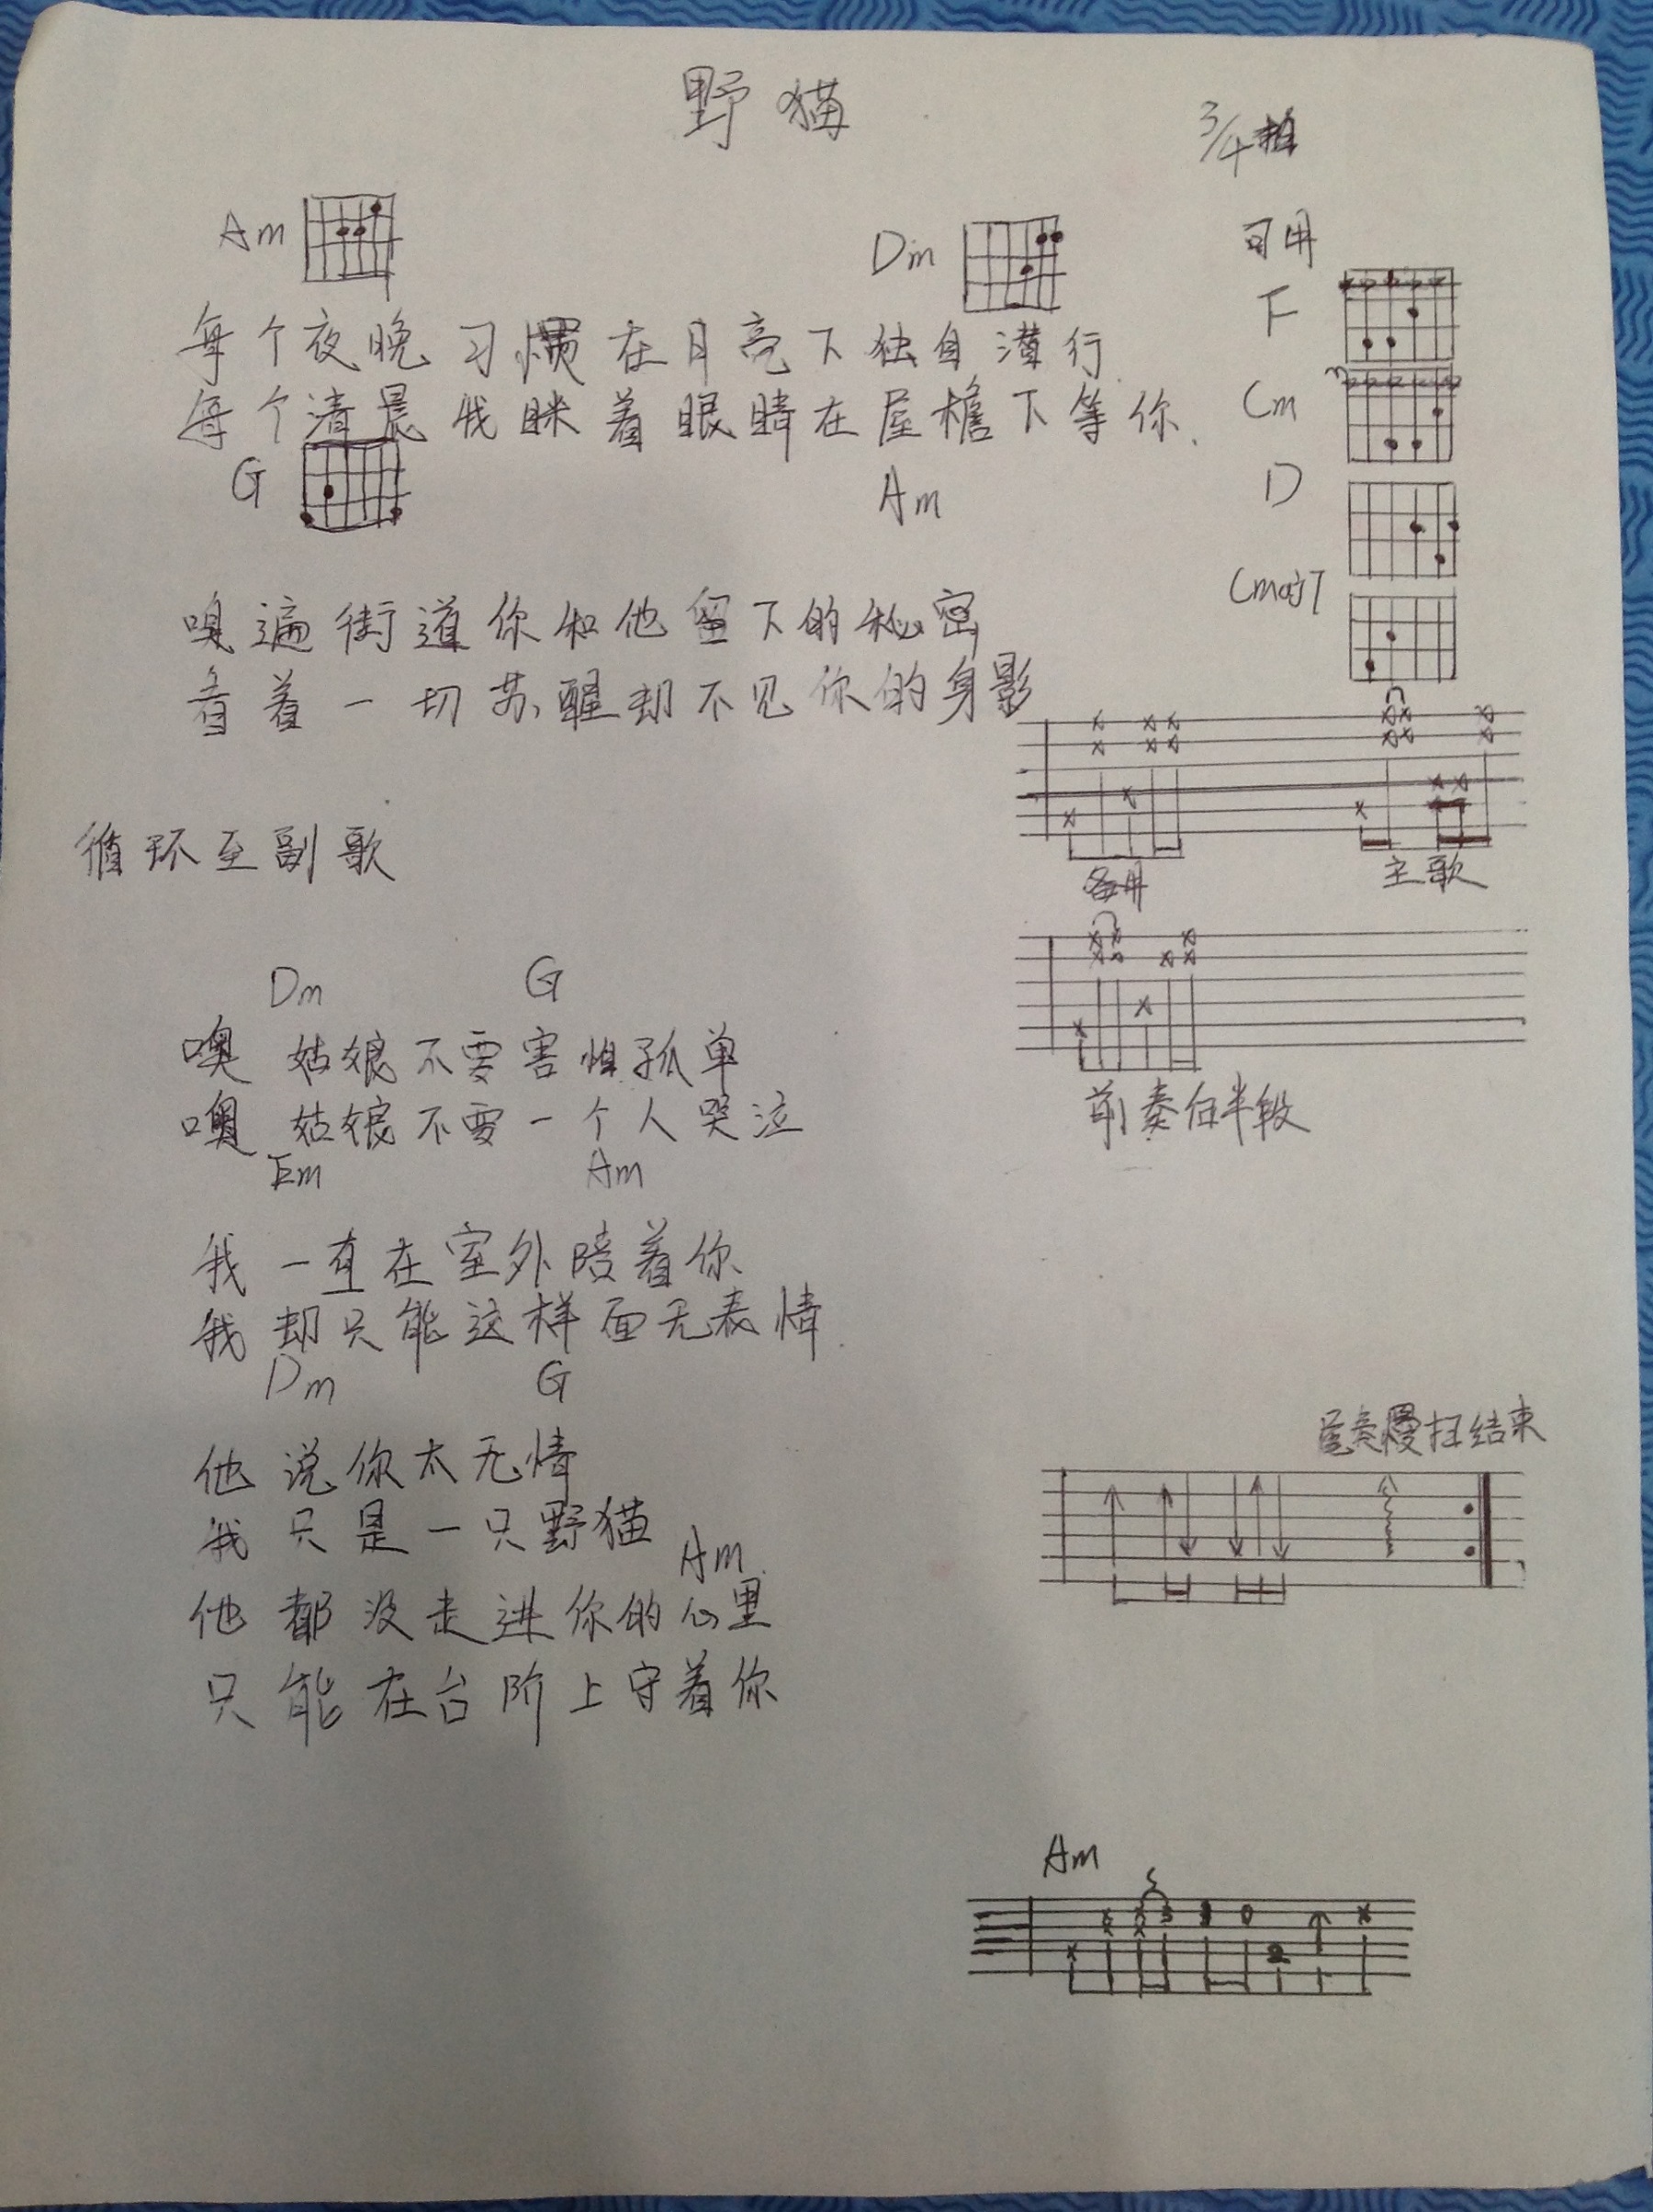 野猫
3/4拍
Am
Dm
可用
F
每个夜晚习惯在月亮下独自潜行
每个清晨我眯着眼睛在屋檐下等你
Cm
3
G
Am
D
Cmaj7
嗅遍街道你和他留下的秘密
看着一切苏醒却不见你的身影
循环至副歌
备用
主歌
Dm G
噢 姑娘不要害怕孤单
噢 姑娘不要一个人哭泣
前奏后半段
Em Am
我一直在室外陪着你
我却只能这样面无表情
Dm G
尾奏慢扫结束
他说你太无情
我只是一只野猫
Am
他都没走进你的心里
只能在台阶上守着你
Am
S
3 3 0
2